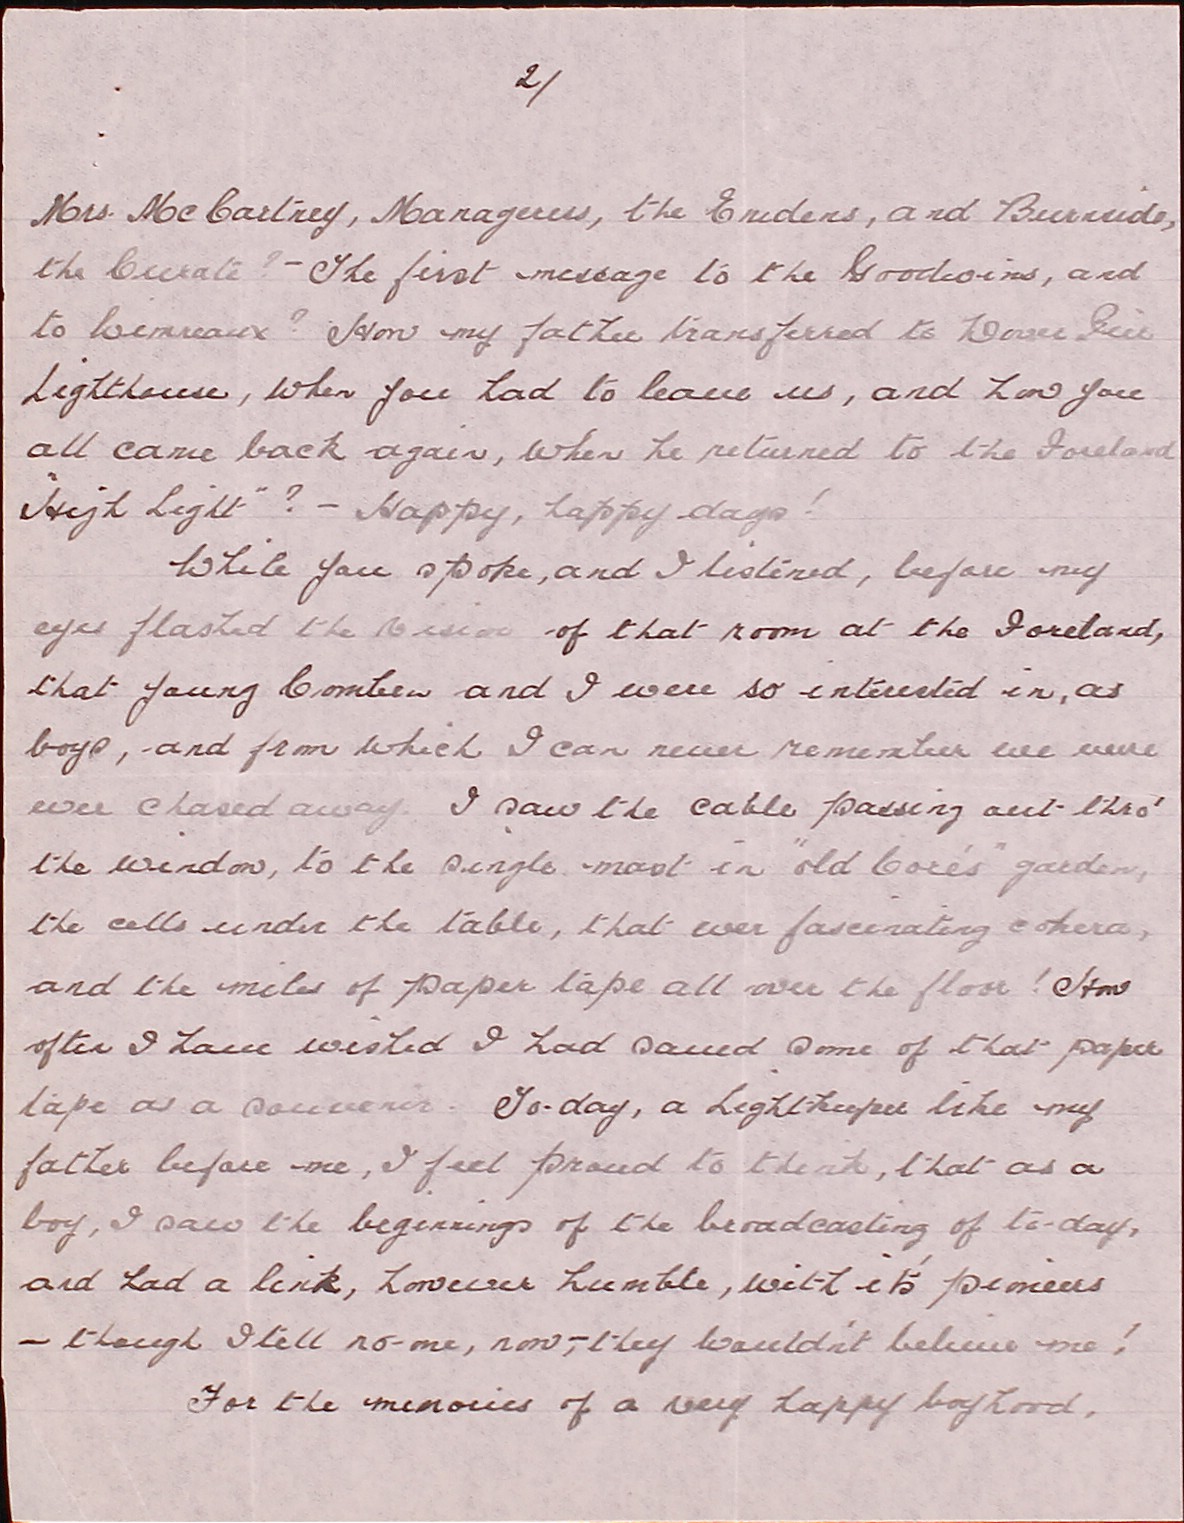 2/
Mrs. McCartney, Manageress, the Emdens, and Burnside,
the Curate? - The first message to the Goodwins, and
to Wimreaux? How my father transferred to Dover Pier
Lighthouse, when you had to leave us, and how you
all came back again, when he returned to the Foreland
"High Light"? - Happy, happy days!
While you spoke, and I listened, before my
eyes flashed the vision of that room at the Foreland,
that young Comben and I were so interested in, as
boys, and from which I can never remember we were
ever chased away. I saw the cable passing out thro'
the window, to the single mast in "old Core's" garden,
the cells under the table, that ever fascinating coherer,
and the miles of paper tape all over the floor! How
often I have wished I had saved some of that paper
tape as a souvenir. To-day, a Lightkeeper like my
father before me, I feel proud to think, that as a
boy, I saw the beginnings of the broadcasting of to-day,
and had a link, however humble, with it's pioneers
- though I tell no-one, now, - they wouldn't believe me!
For the memories of a very happy boyhood,